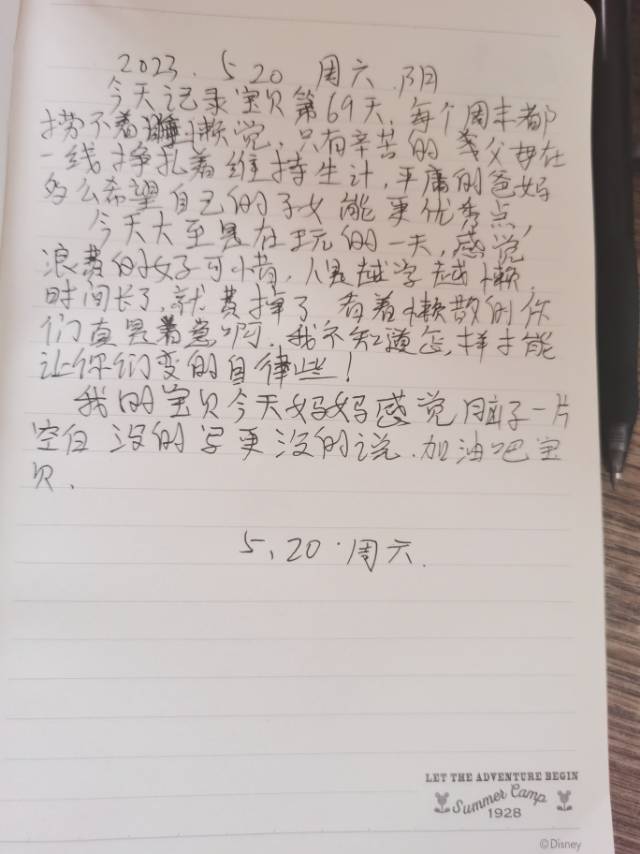 2023. 5 20 周六 阴
今天记录宝贝第69天,每个周末都
捞不着睡懒觉,只有辛苦的父母在
一线挣扎着维持生计,平庸的爸妈
多么希望自己的子女能更优秀点,
今天大至是在玩的一天,感觉
浪费的好子可惜,人是越学越懒,
时间长了,就费掉了 看着懒散的你
们真是着急啊,我不知道怎样才能
让你们变的自律些!
我的宝贝今天妈妈感觉脑子一片
空白 没的写更没的说.加油吧宝
贝.
5,20·周六.
LET THE ADVENTURE BEGIN
Summer Camp
1928
©Disney